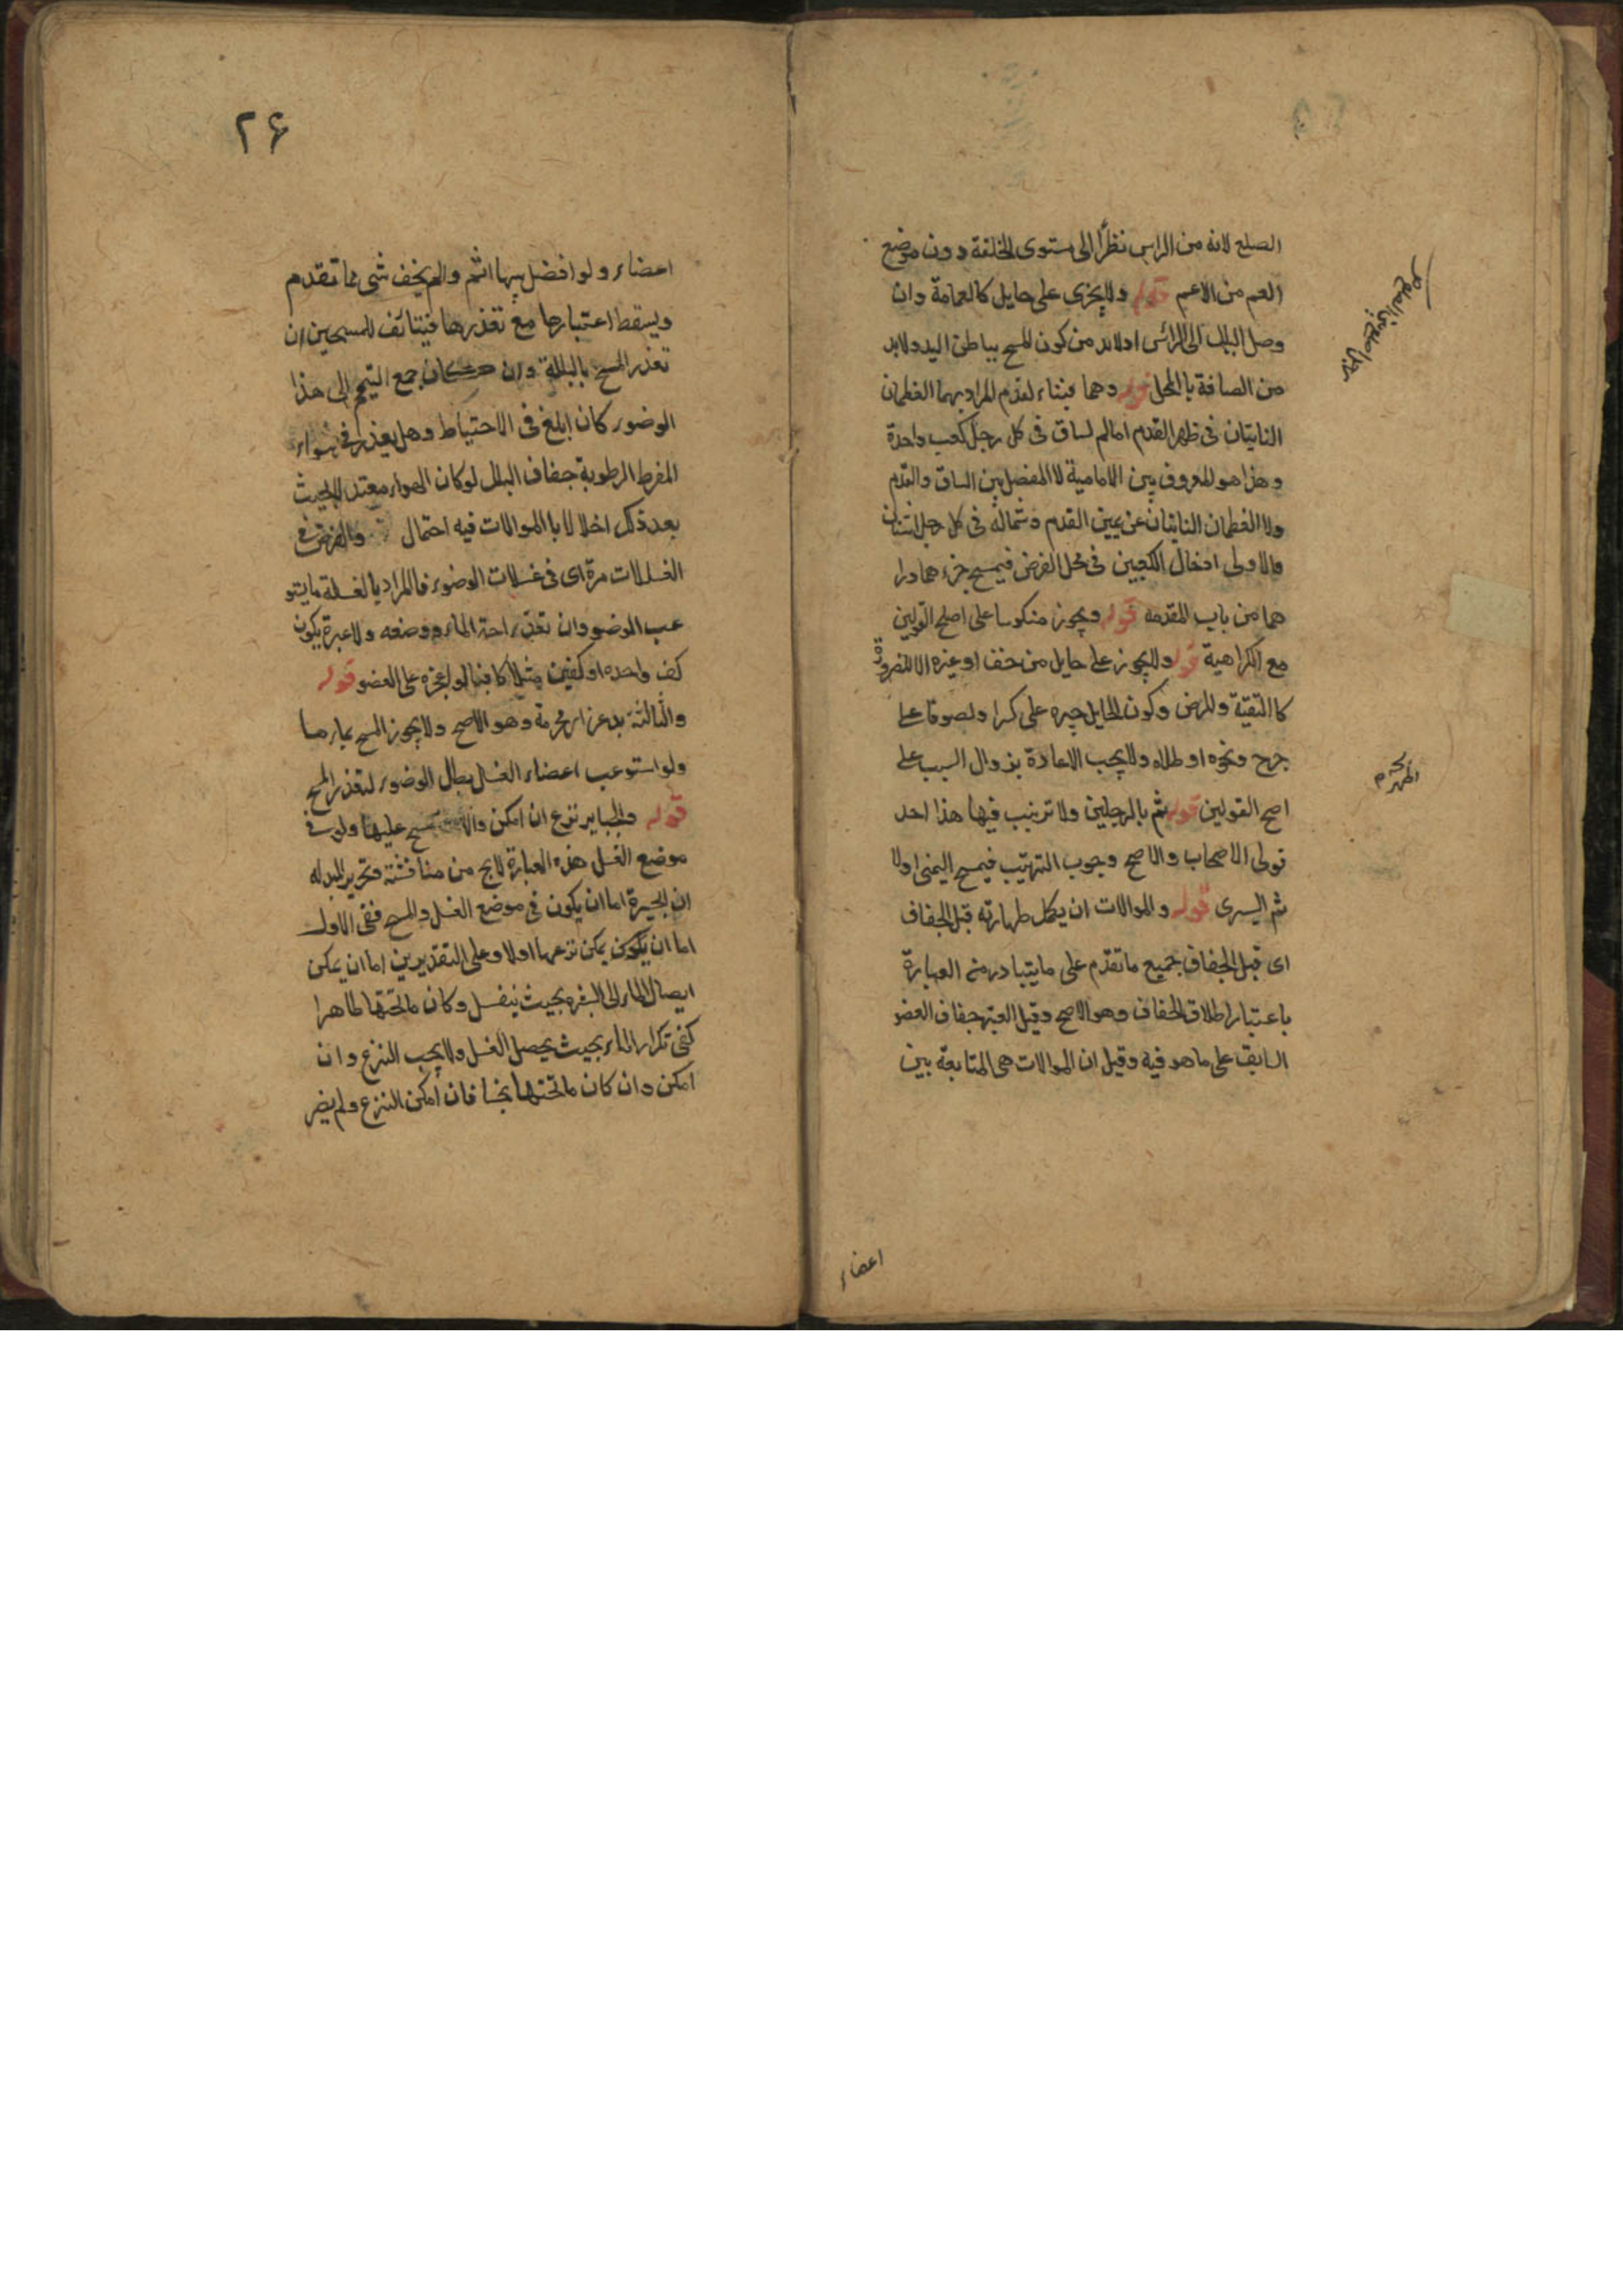 الصلع لانه من الراس نظرًا الى مستوى الخلقة دون موضع
الغم من الاغم قوله ولا يجزى على حايل كالعمامة وان
وصل البلل الى الرأس اولا بد من كون المسح بباطن اليد ولا بد
من الصاقة با المحل قوله وهما قبتا القدم المراد بهما العظمان
النابتان فى ظهر القدم امام الساق فى كل رجل كعب واحدة
وهذا هو المعروف بين الامامية لا المفصل بين الساق والقدم
ولا العظمان الناتيان عن يمين القدم وشماله فى كل رجل اثنان
والاولى ادخال الكعبين فى محل الفرض فيمسح جزء مما ورا
هما من باب المقدمه قوله ويجوز منكوسا على اصلح القولين
مع الكراهية قوله ولا يجوز على حايل من خف او غيره الا للضرورة
كا التقية والمرض وكون الحايل جبيره على كسر او لصوقا على
جرح ونحوه او طلاء ولا يجب الاعادة بزوال السبب على
اصح القولين قوله ثم بالرجلين ولا ترتيب فيها هذا احد
قولى الاصحاب والاصح وجوب الترتيب فيمسح اليمنى اولا
ثم اليسرى قوله والموالات ان يكمل طهارته قبل الجفاف
اى قبل الجفاف جميع ما تقدم على ما يتبادر منه العبارة
باعتبار اطلاق الجفاف وهو الاصح وقيل المعتبر جفاف العضو
السابق على ما هو فيه وقيل ان الموالات هى المتابعة بين
اعضاء
٢۶
اعضاء ولو افضل بها اثم والم يخف شى مما تقدم
ويسقط اعتبارها مع تعذرها فيتانف للمسحين ان
تعذر المسح بالبلة وان جمع التيمم الى هذا
الوضوء كان ابلغ فى الاحتياط وهل يعذر فى هواء
المفرط الرطوبة جفاف البلل لو كان الهواء معتدلا بحيث
بعد ذلك اخلالا با الموالات فيه احتمال والفرض فى
الغسلات مرة اى فى غسلات الوضوء فالمراد بالغسلة ما يستو
عب العضو وان تعدد اخذ الماء ووضعه ولا عبرة بكون
كف واحده او كفين مثلا كافيا لو اجزه على العضو قوله
والثالثة بدعة اى محرمة وهو الاصح ولا يجوز المسح بماءها
ولو استوعب اعضاء الغسل بطل الوضوء لتعذر المسح
قوله والجباير تنزع ان امكن والا مسح عليها ولو فى
موضع الغسل هذه العبارة لا يخ من مناقشته وتحرير المسله
ان الجبيرة اما ان يكون فى موضع الغسل والمسح ففى الاول
اما ان يكون يمكن نزعها اولا وعلى التقديرين اما ان يمكن
ايصال الماء الى البشره بحيث ينغسل وكان ما تحتها طاهرا
كفى تكرار الماء بحيث يحصل الغسل ولا يجب النزع وان
امكن وان كان ما تحتها نجسا فان امكن النزع ولم يضر